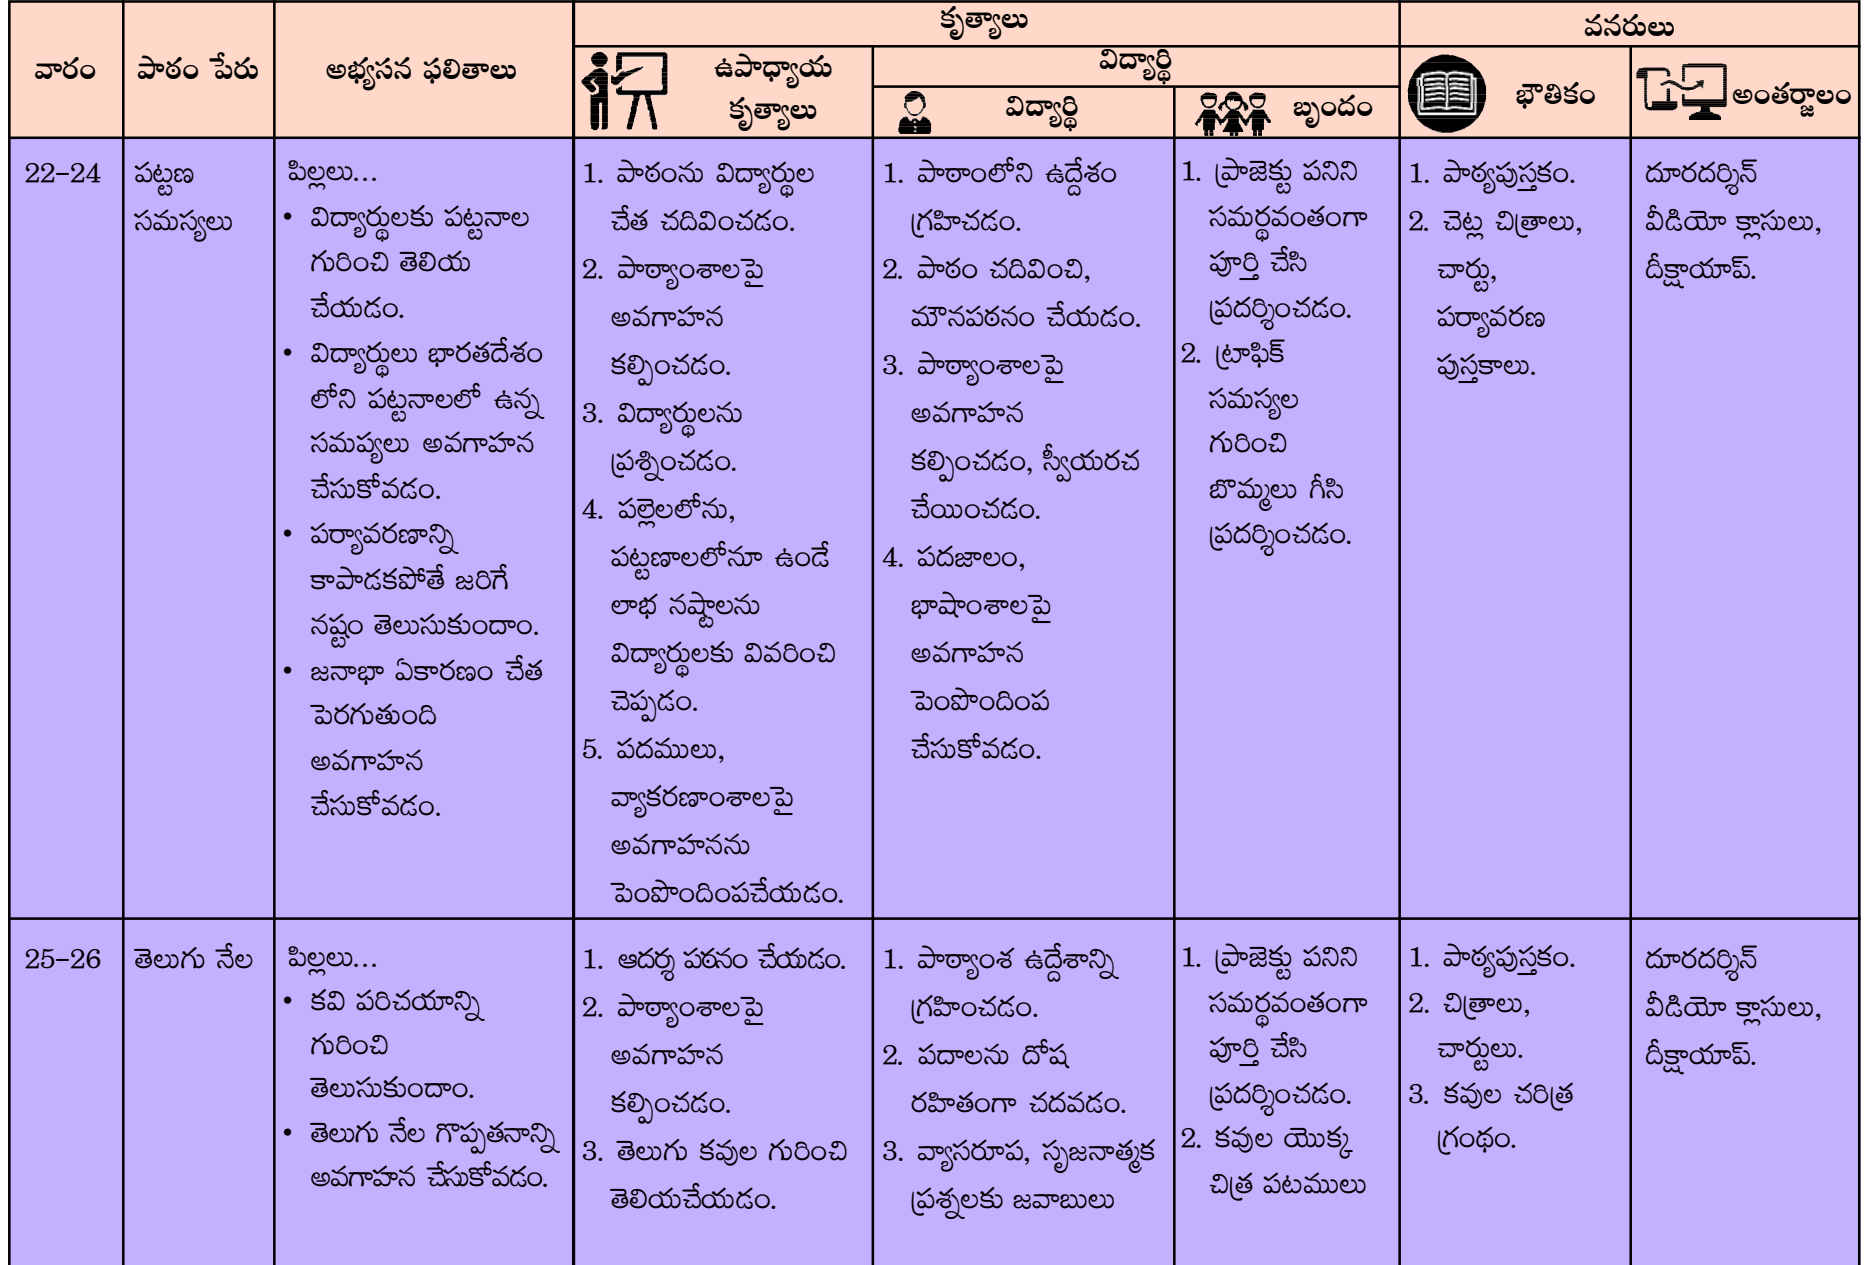 కృత్యాలు
వనరులు
వారం
పాఠం పేరు
అభ్యసన ఫలితాలు
ఉపాధ్యాయ
కృత్యాలు
విద్యార్థి
విద్యార్థి
బృందం
భౌతికం
అంతర్జాలం
22-24
పట్టణ
సమస్యలు
పిల్లలు...
• విద్యార్థులకు పట్టనాల
గురించి తెలియ
చేయడం.
• విద్యార్థులు భారతదేశం
లోని పట్టనాలలో ఉన్న
సమప్యలు అవగాహన
చేసుకోవడం.
• పర్యావరణాన్ని
కాపాడకపోతే జరిగే
నష్టం తెలుసుకుందాం.
• జనాభా ఏకారణం చేత
పెరగుతుంది
అవగాహన
చేసుకోవడం.
1. పాఠంను విద్యార్థుల
చేత చదివించడం.
2. పాఠ్యాంశాలపై
అవగాహన
కల్పించడం.
3. విద్యార్థులను
ప్రశ్నించడం.
4. పల్లెలలోను,
పట్టణాలలోనూ ఉండే
లాభ నష్టాలను
విద్యార్థులకు వివరించి
చెప్పడం.
5. పదములు,
వ్యాకరణాంశాలపై
అవగాహనను
పెంపొందింపచేయడం.
1. పాఠాంలోని ఉద్దేశం
గ్రహిచడం.
2. పాఠం చదివించి,
మౌనపఠనం చేయడం.
3. పాఠ్యాంశాలపై
అవగాహన
కల్పించడం, స్వీయరచ
చేయించడం.
4. పదజాలం,
భాషాంశాలపై
అవగాహన
పెంపొందింప
చేసుకోవడం.
1. ప్రాజెక్టు పనిని
సమర్థవంతంగా
పూర్తి చేసి
ప్రదర్శించడం.
2. ట్రాఫిక్
సమస్యల
గురించి
బొమ్మలు గీసి
ప్రదర్శించడం.
1. పాఠ్యపుస్తకం.
2. చెట్ల చిత్రాలు,
చార్టు,
పర్యావరణ
పుస్తకాలు.
దూరదర్శిన్
వీడియో క్లాసులు,
దీక్షాయాప్.
25-26
తెలుగు నేల
పిల్లలు...
• కవి పరిచయాన్ని
గురించి
తెలుసుకుందాం.
• తెలుగు నేల గొప్పతనాన్ని
అవగాహన చేసుకోవడం.
1. ఆదర్శ పఠనం చేయడం.
2. పాఠ్యాంశాలపై
అవగాహన
కల్పించడం.
3. తెలుగు కవుల గురించి
తెలియచేయడం.
1. పాఠ్యాంశ ఉద్దేశాన్ని
గ్రహించడం.
2. పదాలను దోష
రహితంగా చదవడం.
3. వ్యాసరూప, సృజనాత్మక
ప్రశ్నలకు జవాబులు
1. ప్రాజెక్టు పనిని
సమర్థవంతంగా
పూర్తి చేసి
ప్రదర్శించడం.
2. కవుల యొక్క
చిత్ర పటములు
1. పాఠ్యపుస్తకం.
2. చిత్రాలు,
చార్టులు.
3. కవుల చరిత్ర
గ్రంథం.
దూరదర్శిన్
వీడియో క్లాసులు,
దీక్షాయాప్.